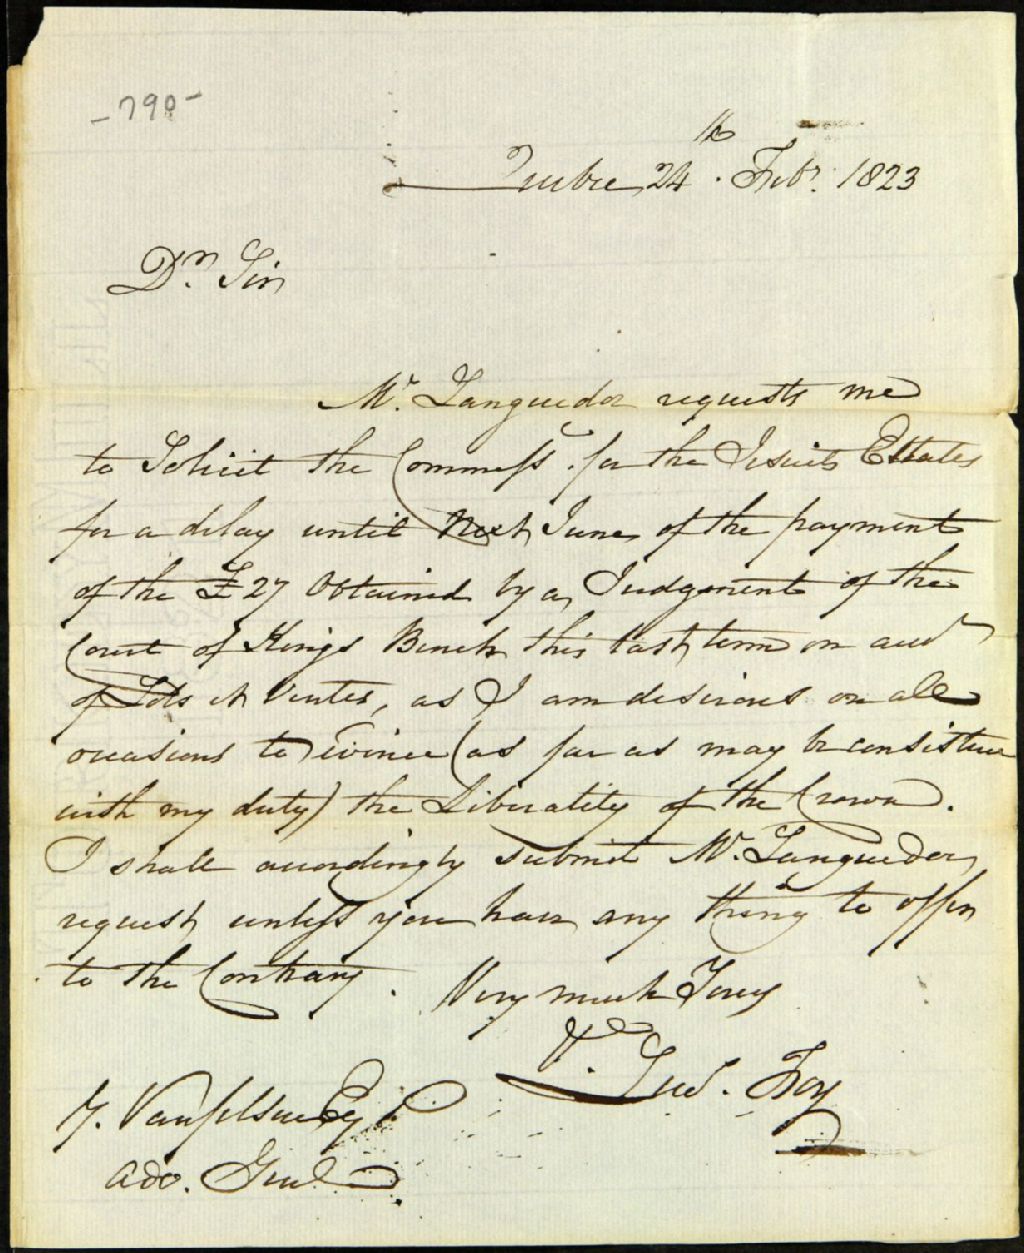 -790-
Quebec 24th. Feby. 1823
Dr. Sir
Mr. Languedoc requests me
to Solicit the Commissrs. for the Jesuits Estates
for a delay until Next June, of the payment
of the £27 Obtained by a Judgment of the
Court of Kings Bench this last term on acct
of Lots et Ventes, as I am desirous on all
occasions to evince (as far as may be consistent
with my duty) the Liberality of the Crown.
I shall accordingly submit Mr. Languedoc,
request, unless you have any thing to offer
to the Contrary. Very much Yours
Foy
Vanfelson Esqr.
Advo. Genl